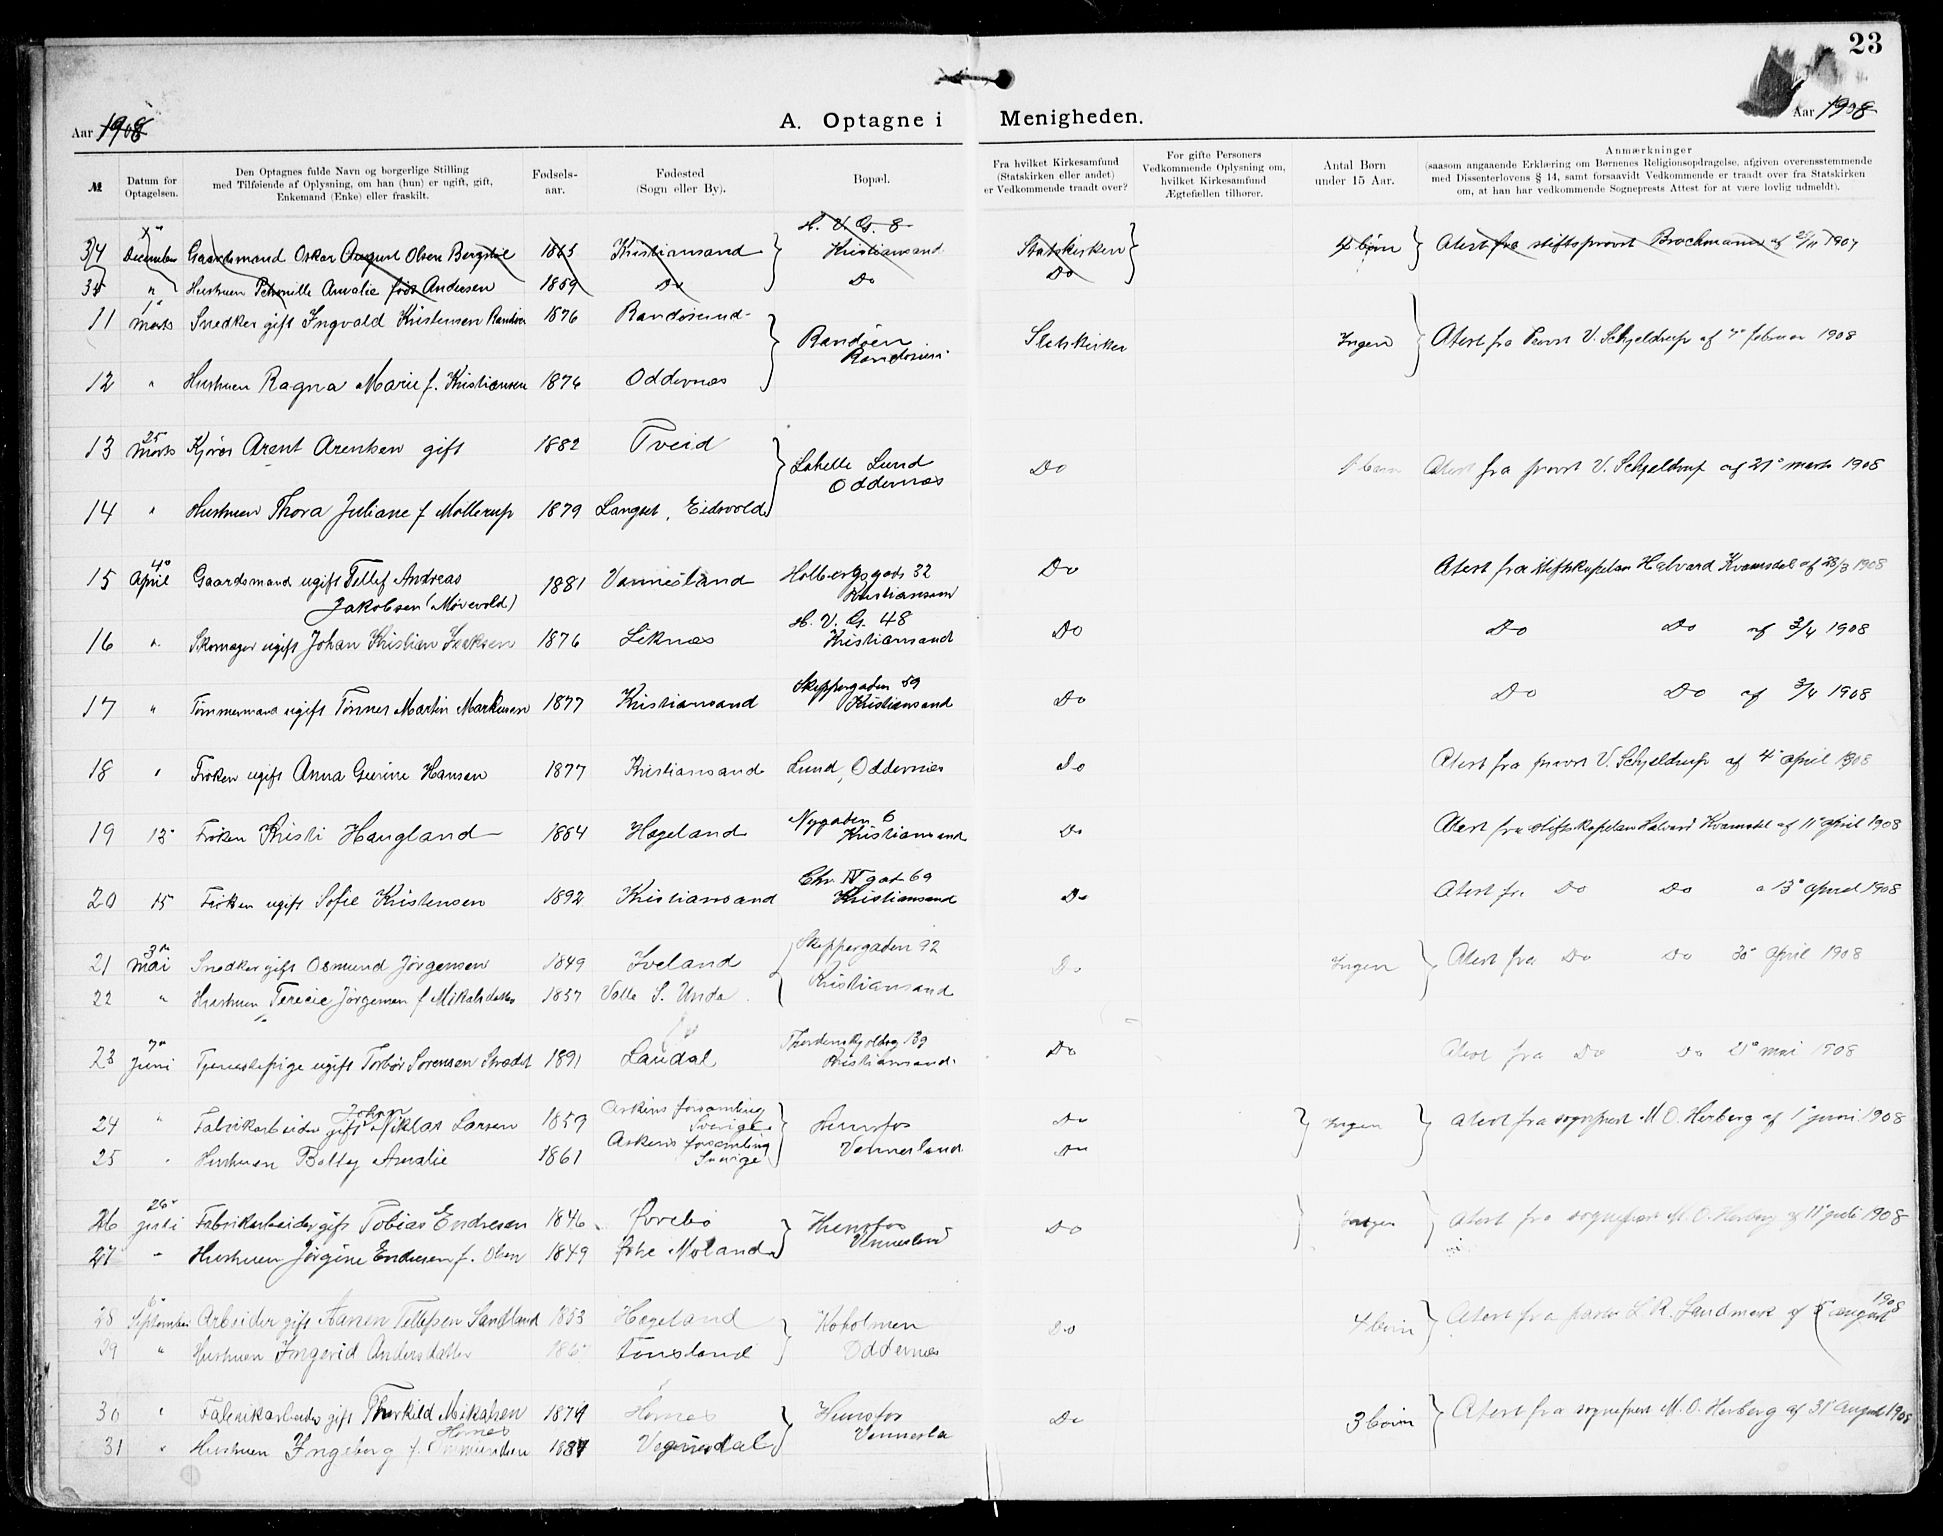 23
Aar 1908
A. Optagne i Menigheden.
Aar 1908
№
Datum for Optagelsen.
Den Optagnes fulde Navn og borgerlige Stilling med Tilføiende af Oplysning, om han (hun) er ugift, gift, Enkemand (Enke) eller fraskilt.
Fødsels-aar.
Fødested (Sogn eller By).
Bopæl.
Fra hvilket Kirkesamfund (Statskirken eller andet) er Vedkommende traadt over?
For gifte Personers Vedkommende Oplysning om, hvilket Kirkesamfund Ægtefællen tilhører.
Antal Børn under 15 Aar.
Anmærkninger (saasom angaaende Erklæring om Børnenes Religionsopdragelse, afgiven overensstemmende med Dissenterlovens § 14, samt forsaavidt Vedkommende er traadt over fra Statskirken om, at han har vedkommende Sogneprests Attest for at være lovlig udmeldt).
34 December Gaardsmand Oskar August Olsen Bergstøl 1865 Kristiansand H. V. G. 8 Kristiansand Statskirken 4 børn Atest fra stiftsprovst Brochmann af 25/11 1907
35 " Hustruen Petronille Amalie født Andersen 1859 Do Do Do
11 1" Marts Snedker gift Ingvald Kristensen Randøen 1876 Randøsund Randøen Randøsund Statskirken Ingen Atest fra Provst V. Schjeldrup af 7" februar 1908
12 " Hustruen Ragna Marie f. Kristiansen 1876 Oddernæs
13 25 Marts Kjører Arent Arentsen gift 1882 Tveid Lahelle Lund Oddernæs Do 1 barn Atest fra provst V. Schjeldrup af 21" marts 1908
14 " Hustruen Thora Juliane f Møllerup 1879 Langset, Eidsvold
15 4" April Gaardsmand ugift Tellef Andreas Jakobsen (Mørevold) 1881 Vennesland Holbergsgade 32 Kristiansand Do Atest fra stiftskapelan Halvard Kvamsdal af 28/3 1908
16 " Skomager ugift Johan Kristian Isaksen 1876 Liknæs H. V. G. 48 Kristiansand Do Do Do af 3/4 1908
17 " Tømmermand ugift Tønnes Martin Markusen 1877 Kristiansand Skippergaden 59 Kristiansand Do Do Do af 3/4 1908
18 " Frøken ugift Anna Gurine Hansen 1877 Kristiansand Lund, Oddernæs Do Atest fra provst V. Schjeldrup af 4" april 1908
19 13" Frøken Kristi Haugland 1884 Hægeland Nygaden 6 Kristiansand Do Atest fra stiftskapelan Halvard Kvamsdal af 11" april 1908
20 15 Frøken ugift Sofie Kristensen 1892 Kristiansand Chr. IV gat 69 Kristiansand Do Atest fra Do Do a 13" april 1908
21 3" Mai Snedker gift Osmund Jørgensen 1849 Iveland Skippergaden 92 Kristiansand Do Ingen Atest fra Do Do 30" April 1908
22 " Hustruen Terecie Jørgensen f Mikalsdatter 1857 Valle S. Unda
23 7" Juni Tjenestepige ugift Torbør Sørensen 1891 Laudal Thordenskjoldsg 139 Kristiansand Do Atest fra Do Do 21" mai 1908
24 " Fabrikarbeider gift Johan Niklas Larsen 1859 Askers forsamling Sverige Hunsfos Vennesland Do Ingen Atest fra sogneprest M. O. Herberg af 1" juni 1908
25 " Hustruen Betty Amalie 1861 Askers forsamling Sverige Do
26 26" juli Fabrikarbeider gift Tobias Endresen 1846 Øvrebø Hunsfos Vennesland Do Ingen Atest fra sogneprest M. O. Herberg af 11" juli 1908
27 " Hustruen Jørgine Endresen f. Olsen 1849 Østre Moland
28 6" September Arbeider gift Aanen Tellefsen Sandland 1853 Hægeland Koholmen Oddernæs Do 4 børn Atest fra pastor L. R. Landmark af 5" august 1908
29 " Hustruen Ingerid Andersdatter Finsland
30 " Fabrikarbeider gift Thorkild Mikalsen 1874 Hornes Hunsfos Vennesla Do 3 børn Atest fra sogneprest M. O. Herberg af 31" august 1908
31 " Hustruen Ingeborg f. Hornes 1887 Vegusdal